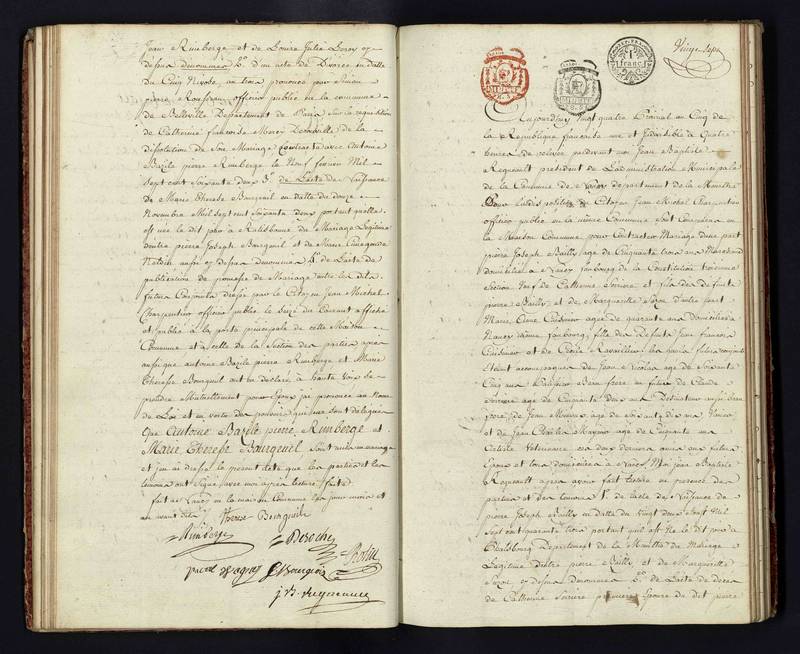 Jean Rimberge et de Louise Julie Leroy cy
dessus denommés 2.º d'un acte de Divorce en datte
du Cinq Nivose, an trois prononcé par Simon
pierre, officier public en la commune
de Belleville Departement de Paris sur la requisition
de Catherine francoise de la
dissolution de Son Mariage Contracté avec antoine
Bazile pierre Rimberge le Neuf fevrier Mil
Sept cent Soixante douze 3.º de L'acte de Naissance
de Marie Therese Bourgeuil en datte du douze
Novembre Mil Sept cent Soixante douze portant quelle
est née le dit jour à de Mariage Legitime
dentre pierre Joseph Bourgeuil et de Marie Cunegonde
aussi cy dessus denommés 4.º de L'acte de
publication de promesse de Mariage entre les dits
futurs Conjoints dressé par le Citoyen Jean Michel
Charpentier officier public le Seize du Courant affiché
et publié à la porte principale de cette Maison
Commune et à celle de la Section des parties apres
aussi que antoine Bazile pierre Rimberge et Marie
Therese Bourgeuil ont eu déclaré à haute voix Se
prendre Mutuellement pour Epoux j'ai prononcé au Nom
de la Loi et en vertu des pouvoirs qui me sont délégués
que Antoine Bazile pierre Rimberge et
Marie Therese Bourgeuil Sont unis en mariage
et j'en ai dressé le present acte que les parties et les
temoins ont Signé avec moi après lecture faite
fait à Nancy en la maison Commune les jour mois et
an avant dits Therese Bourgeuil
Rimberge
Desroche
Robin
Bourgeois
J B Regneault
Vingt Sept
1
franc
Aujourdhuy Vingt quatre Prairial an Cinq de
la Republique francaise une et Indivisible à Quatre
heures de relevée pardevant moi Jean Baptiste
Regneault president de L'administration Municipale
de la Commune de Nancy departement de la Meurthe
Citoyen Jean Michel Charpentier
officier public en la même Commune Sont Comparus en
la Maison Commune pour Contracter Mariage d'une part
pierre Joseph Bailly agé de Cinquante trois ans Marchand
domicilié à Nancy faubourg de la Constitution troisieme
Section Veuf de Catherine et fils de defunts
pierre Bailly et de Marguerite d'autre part
Marie Anne Cuisinier agée de quarante ans domiciliée
Nancy même faubourg, fille des Defunts Jean francois
Cuisinier et de Cécile Les quels futurs conjoints
Etoient accompagnés de Jean Nicolas agé de Soixante
Cinq ans Beau frere au futur de Claude
agé de Cinquante deux ans aussi beau
frere, de Jean agé de Soixante dix ans
et de Jean agé de Cinquante un
Artiste Veterinaire ces deux derniers amis aux futurs
Epoux et tous domiciliés à Nancy Moi Jean Baptiste
Regneault apres avoir fait lecture en presence des
parties et des temoins 1.º de l'acte de Naissance de
pierre Joseph Bailly en datte du Vingt deux Aout Mil
Sept cent quarante trois portant quil est né le dit jour à
Phalsbourg Departement de la Meurthe de Mariage
Legitime d'entre pierre Bailly et de Marguerite
cy dessus denommés 2.º de L'acte de décès
de Catherine premiere Epouse du dit pierre